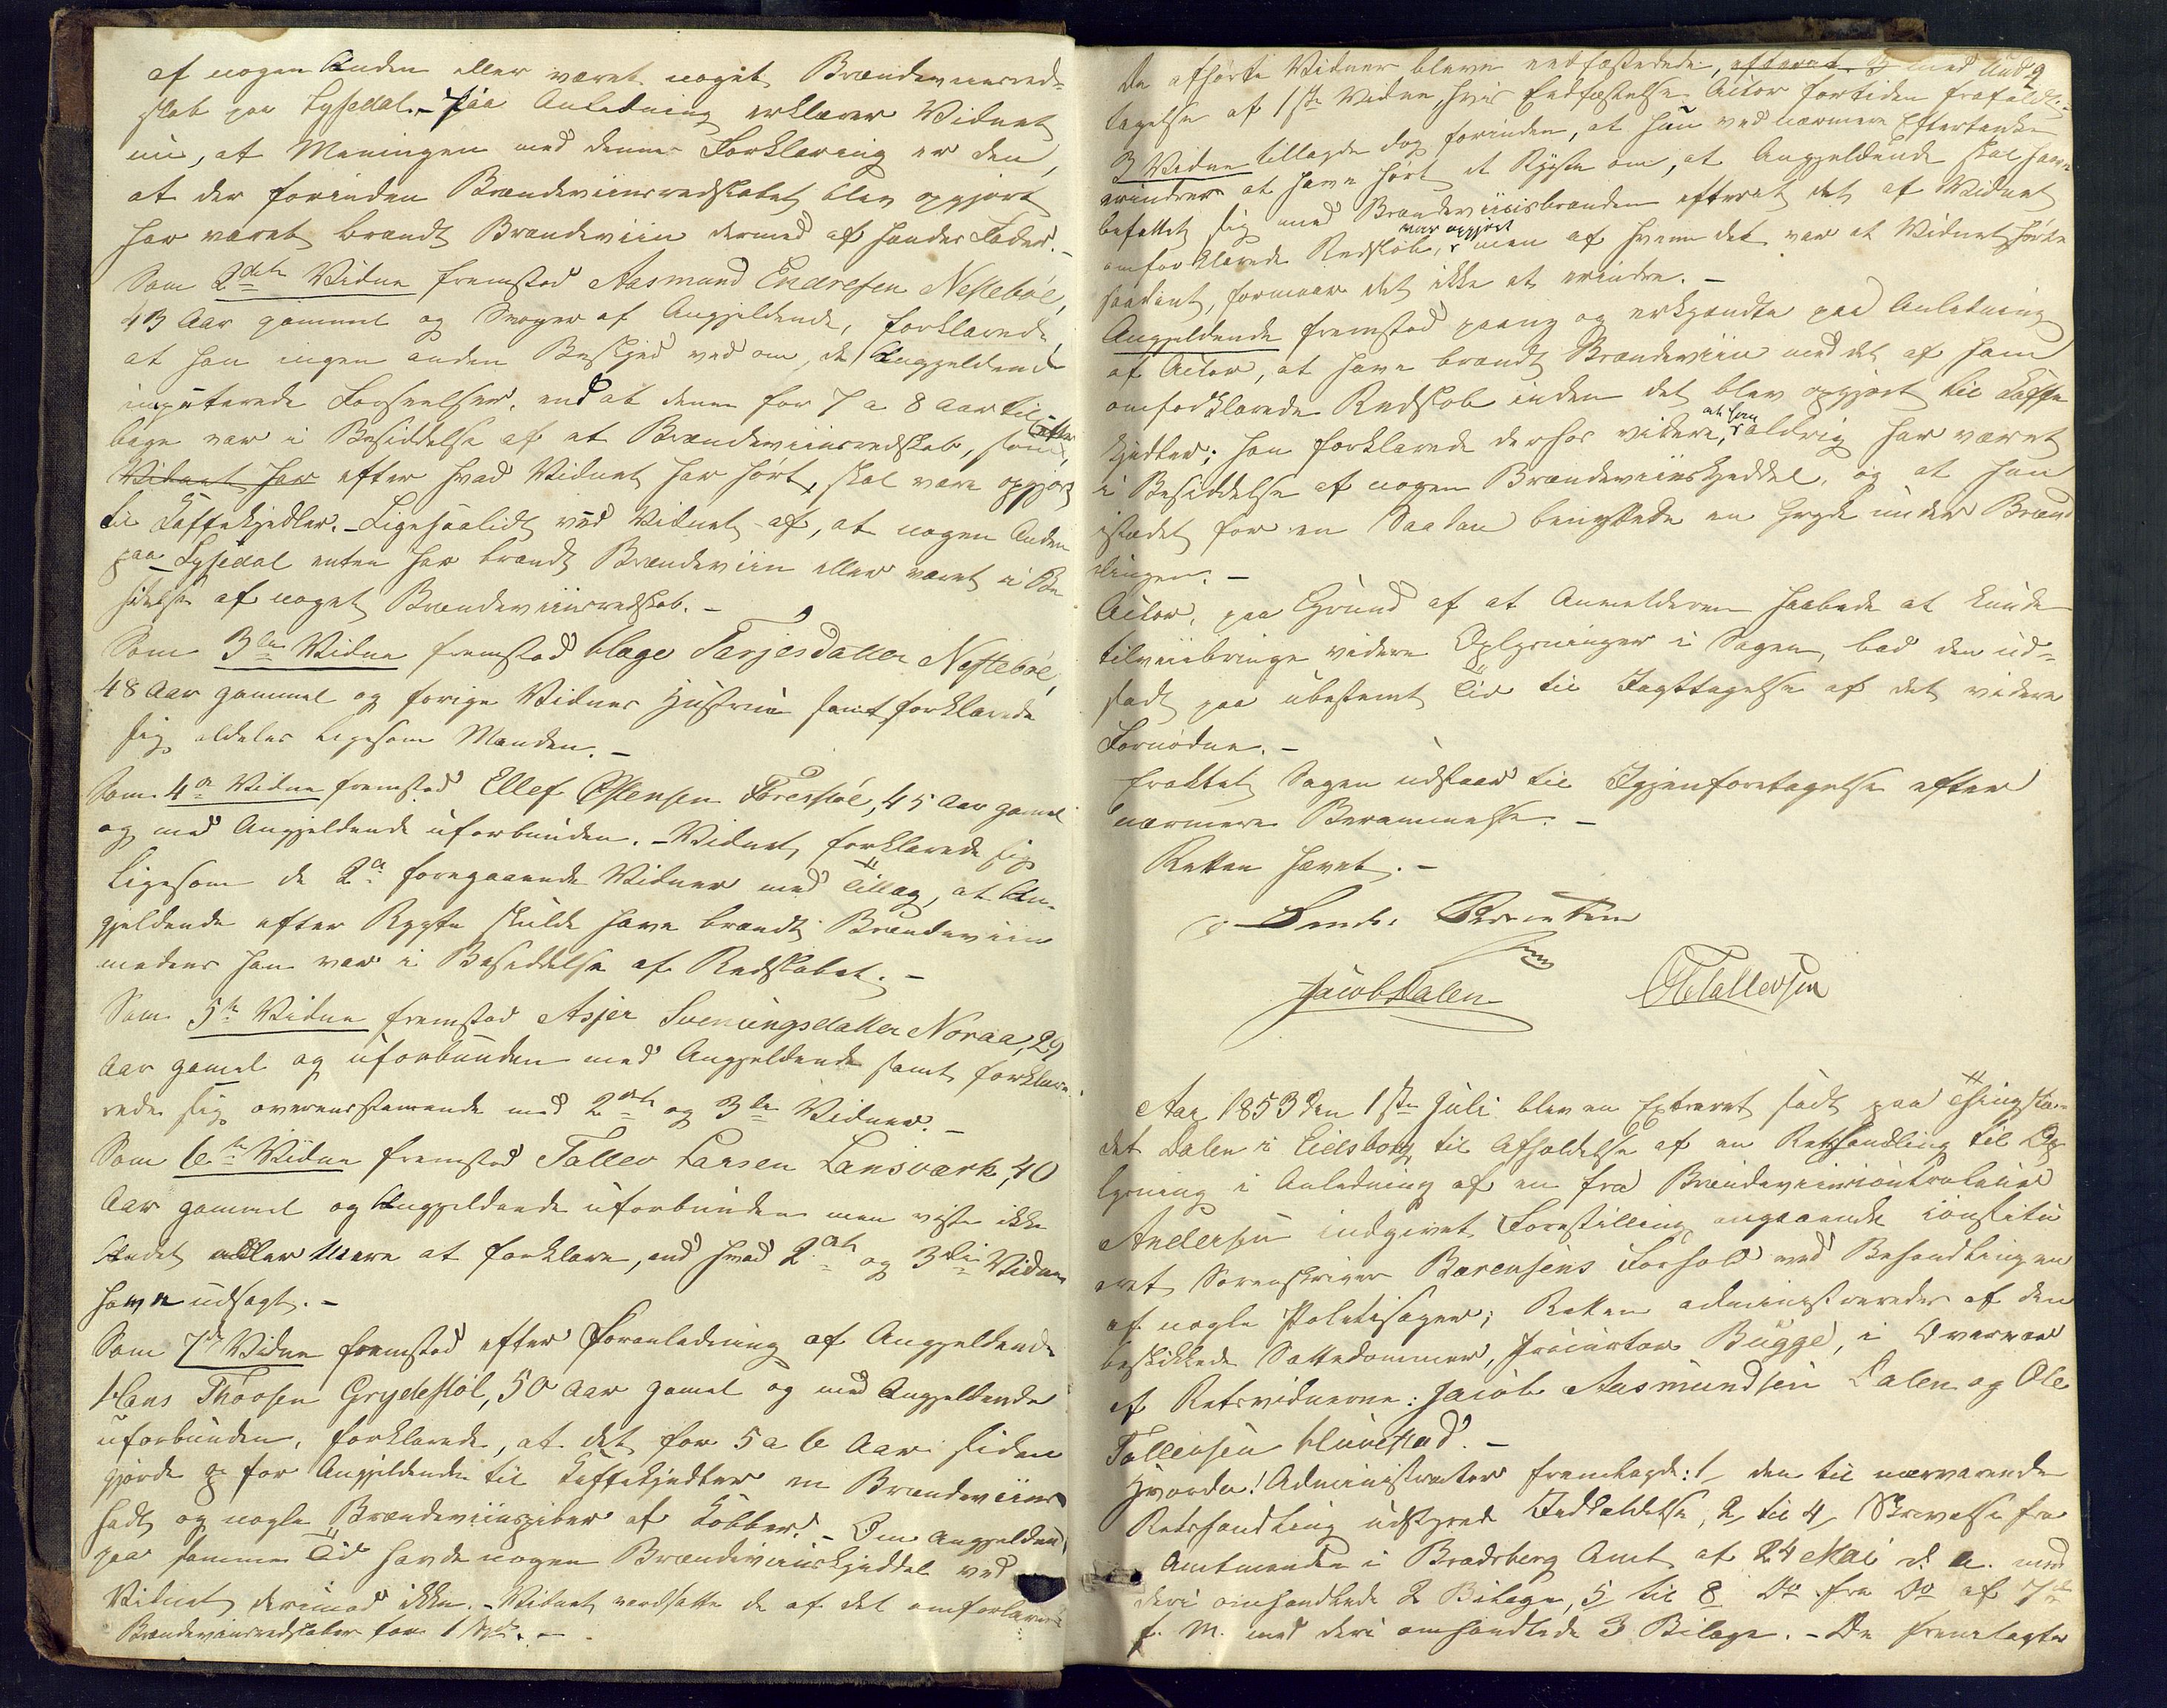 af nogen Anden eller været noget Brændeviinsred-
skab paa Lysedal. - Paa Anledning erklærer Vidnet
nu, at Meningen med denne Forklaring er den,
at der forinden Brændeviinsredskabet blev opgjort
har været brændt Brændeviin dermed af hendes Fader. -
Som 2det Vidne fremstod Aasmund Endresen Nestebøe,
43 Aar gammel og Svoger af Angjeldende, forklarede,
at han ingen anden Beskjed ved om, de Angjeldende
imputerede Forseelser, end at denne for 7 a 8 Aar til-
bage var i Besiddelse af et Brændeviinsredskab, som,
Vidnet har efter hvad Vidnet har hørt, skal være opgjort
til Kaffekjedler. - Ligesaalidt ved Vidnet af, at nogen Anden
paa Lysedal enten har brændt Brændeviin eller været i Be-
siddelse af noget Brændeviinsredskab. -
Som 3die Vidne fremstod Aage Tarjesdatter Nestebøe,
48 Aar gammel og forrige Vidnes Hustrue samt forklarede
sig aldeles ligesom Manden. -
Som 4de Vidne fremstod Ellef Østensen 45 Aar gamel
og med Angjeldende uforbunden. - Vidnet forklarede sig
ligesom de 2de foregaaende Vidner med Tillæg, at An-
gjeldende efter Rygte skulde have brændt Brændeviin
medens han var i Besiddelse af Redskabet. -
Som 5te Vidne fremstod Asjer Sveinungsdatter Noraa, 29
Aar gamel og uforbunden med Angjeldende samt forkla-
rede sig overensstemmende med 2det og 3die Vidner. -
Som 6te Vidne fremstod Tallev Larsen Lansværk, 40
Aar gammel og Angjeldende uforbunden men viste ikke
Andet eller Mere at forklare, end hvad 2det og 3die Vidne
have udsagt. -
Som 7de Vidne fremstod efter Foranledning af Angjeldende
Hans Thorsen Grydestøl, 50 Aar gamel og med Angjeldende
uforbunden, forklarede, at det for 5 a 6 Aar siden
gjorde for Angjeldende til Kaffekjedler en Brændeviins
hadt og nogle Brændeviinspiber af Kobber. - Om Angjeldende
paa samme Tid havde nogen Brændeviinskjeddel ved
Vidnet derimod ikke. - Vidnet værdsatte de af det omforklarede
Brændeviinsredskaber for 1
De afhørte Vidner bleve eedfæstede, med Und- 9
tagelse af 1ste Vidne, hvis Eedfæstelse Actor fortiden frafaldt. -
3 Vidne tillagde dog forinden, at hun ved nærmere Eftertanke
erindrer at have hørt et Rygte om, at Angjeldende skal have
befattet sig med Brændeviinsbrænden efterat det af Vidnet
omforklarede Redskab var opgjort, men af hvem det var at Vidnet hørte
saadant, formaar det ikke at erindre. -
Angjeldende fremstod paany og erkjendte paa Anledning
af Actor, at have brændt Brændeviin med det af ham
omforklarede Redskab inden det blev opgjort til Kaffe
kjedler; han forklarede derhos videre, at han aldrig har været
i Besiddelse af nogen Brændeviinskjeddel, og at han
istedet for en Saadan benyttede en Gryde under Brænd
dingen. -
Actor, paa Grund af at Anmelderen haabede at kunde
tilveiebringe videre Oplysninger i Sagen, bad den ud-
sadt paa ubestemt Tid til Iagttagelse af det videre
Fornødne. -
Eractet Sagen udstaar til Igjenforetagelse efter
nærmere Berammelse. -
Retten hævet. -
Jacob Dalen
O Tallevsen
Aar 1853 den 1ste Juli blev en Extraret sadt paa Thingste-
det Dalen i Eidsborg til Afholdelse af en Retshandling til Op-
lysning i Anledning af en fra Brændeviinscontroleur
Andersen indgivet Forestilling angaaende constitu
eret Sorenskriver Barensens Forhold ved Behandlingen
af nogle Politisager; Retten administreredes af den
beskikkede Sættedommer, Procurator Bugge, i Overvær
af Retsvidnerne: Jacob Aasmundsen Dalen og Ole
Tallevsen
Hvorda! Administrator fremlagde: 1, den til nærværende
Retshandling udstædte Indkaldelse, 2, til 4, Skrivelse fra
Amtmanden i Bradsberg Amt af 24 Mai d. A. med
deri omhandlede 2 Bilage, 5 til 8 Do fra Do af 7de
f. M. med deri omhandlede 3 Bilage. - De fremlagte